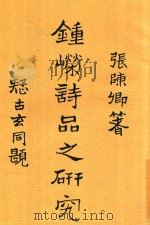 張陳卿著
鍾嶸詩品之研究
疑古玄同題